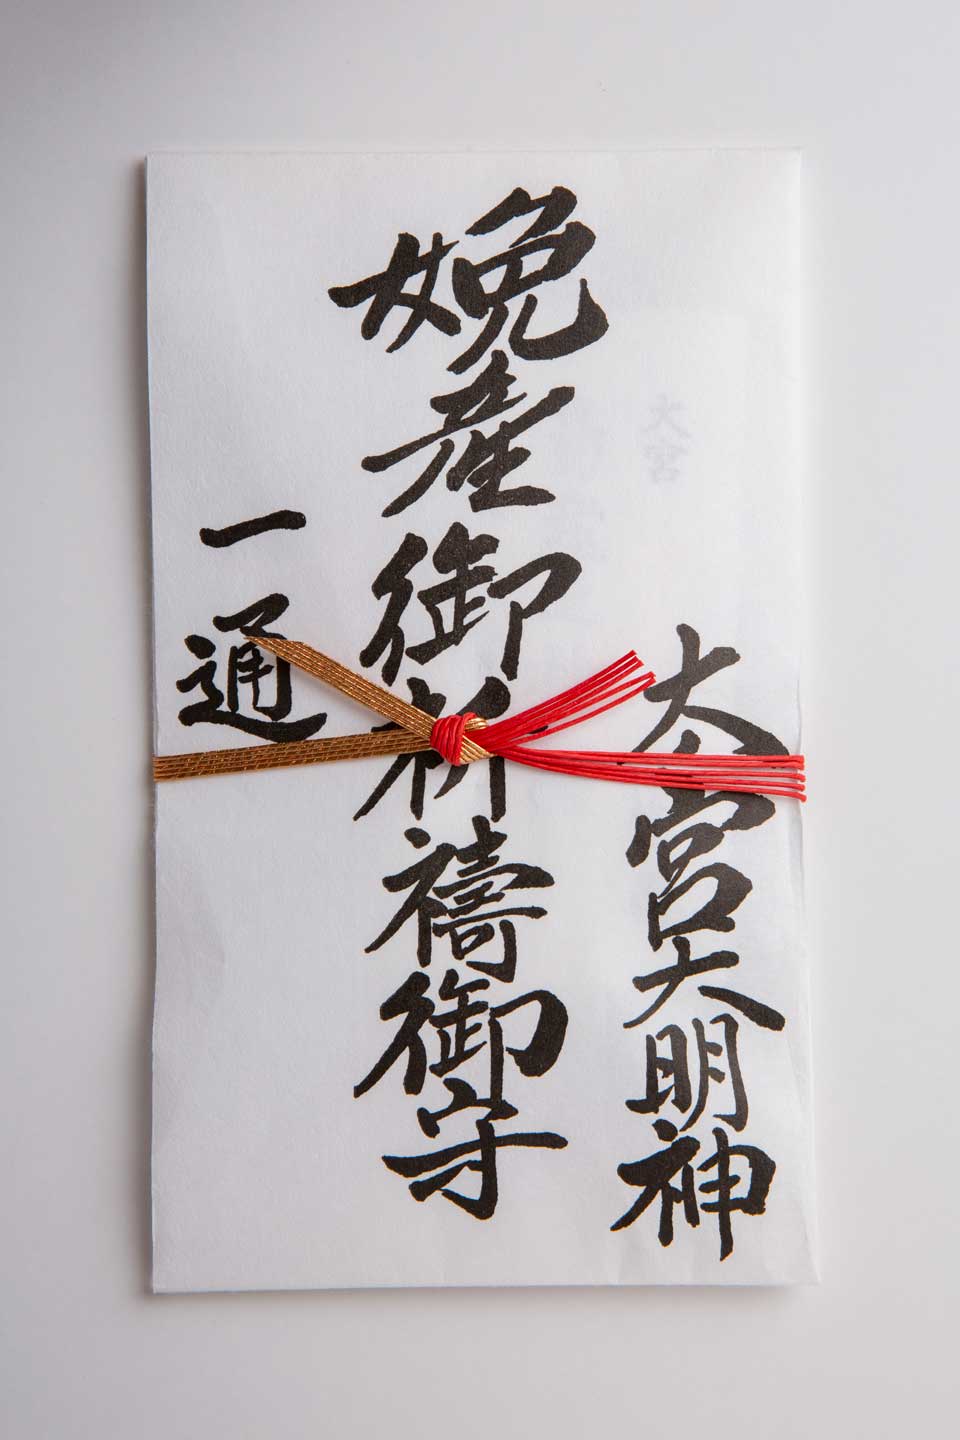 大宮大明神
娩産御祈禱御守
一通
大宮